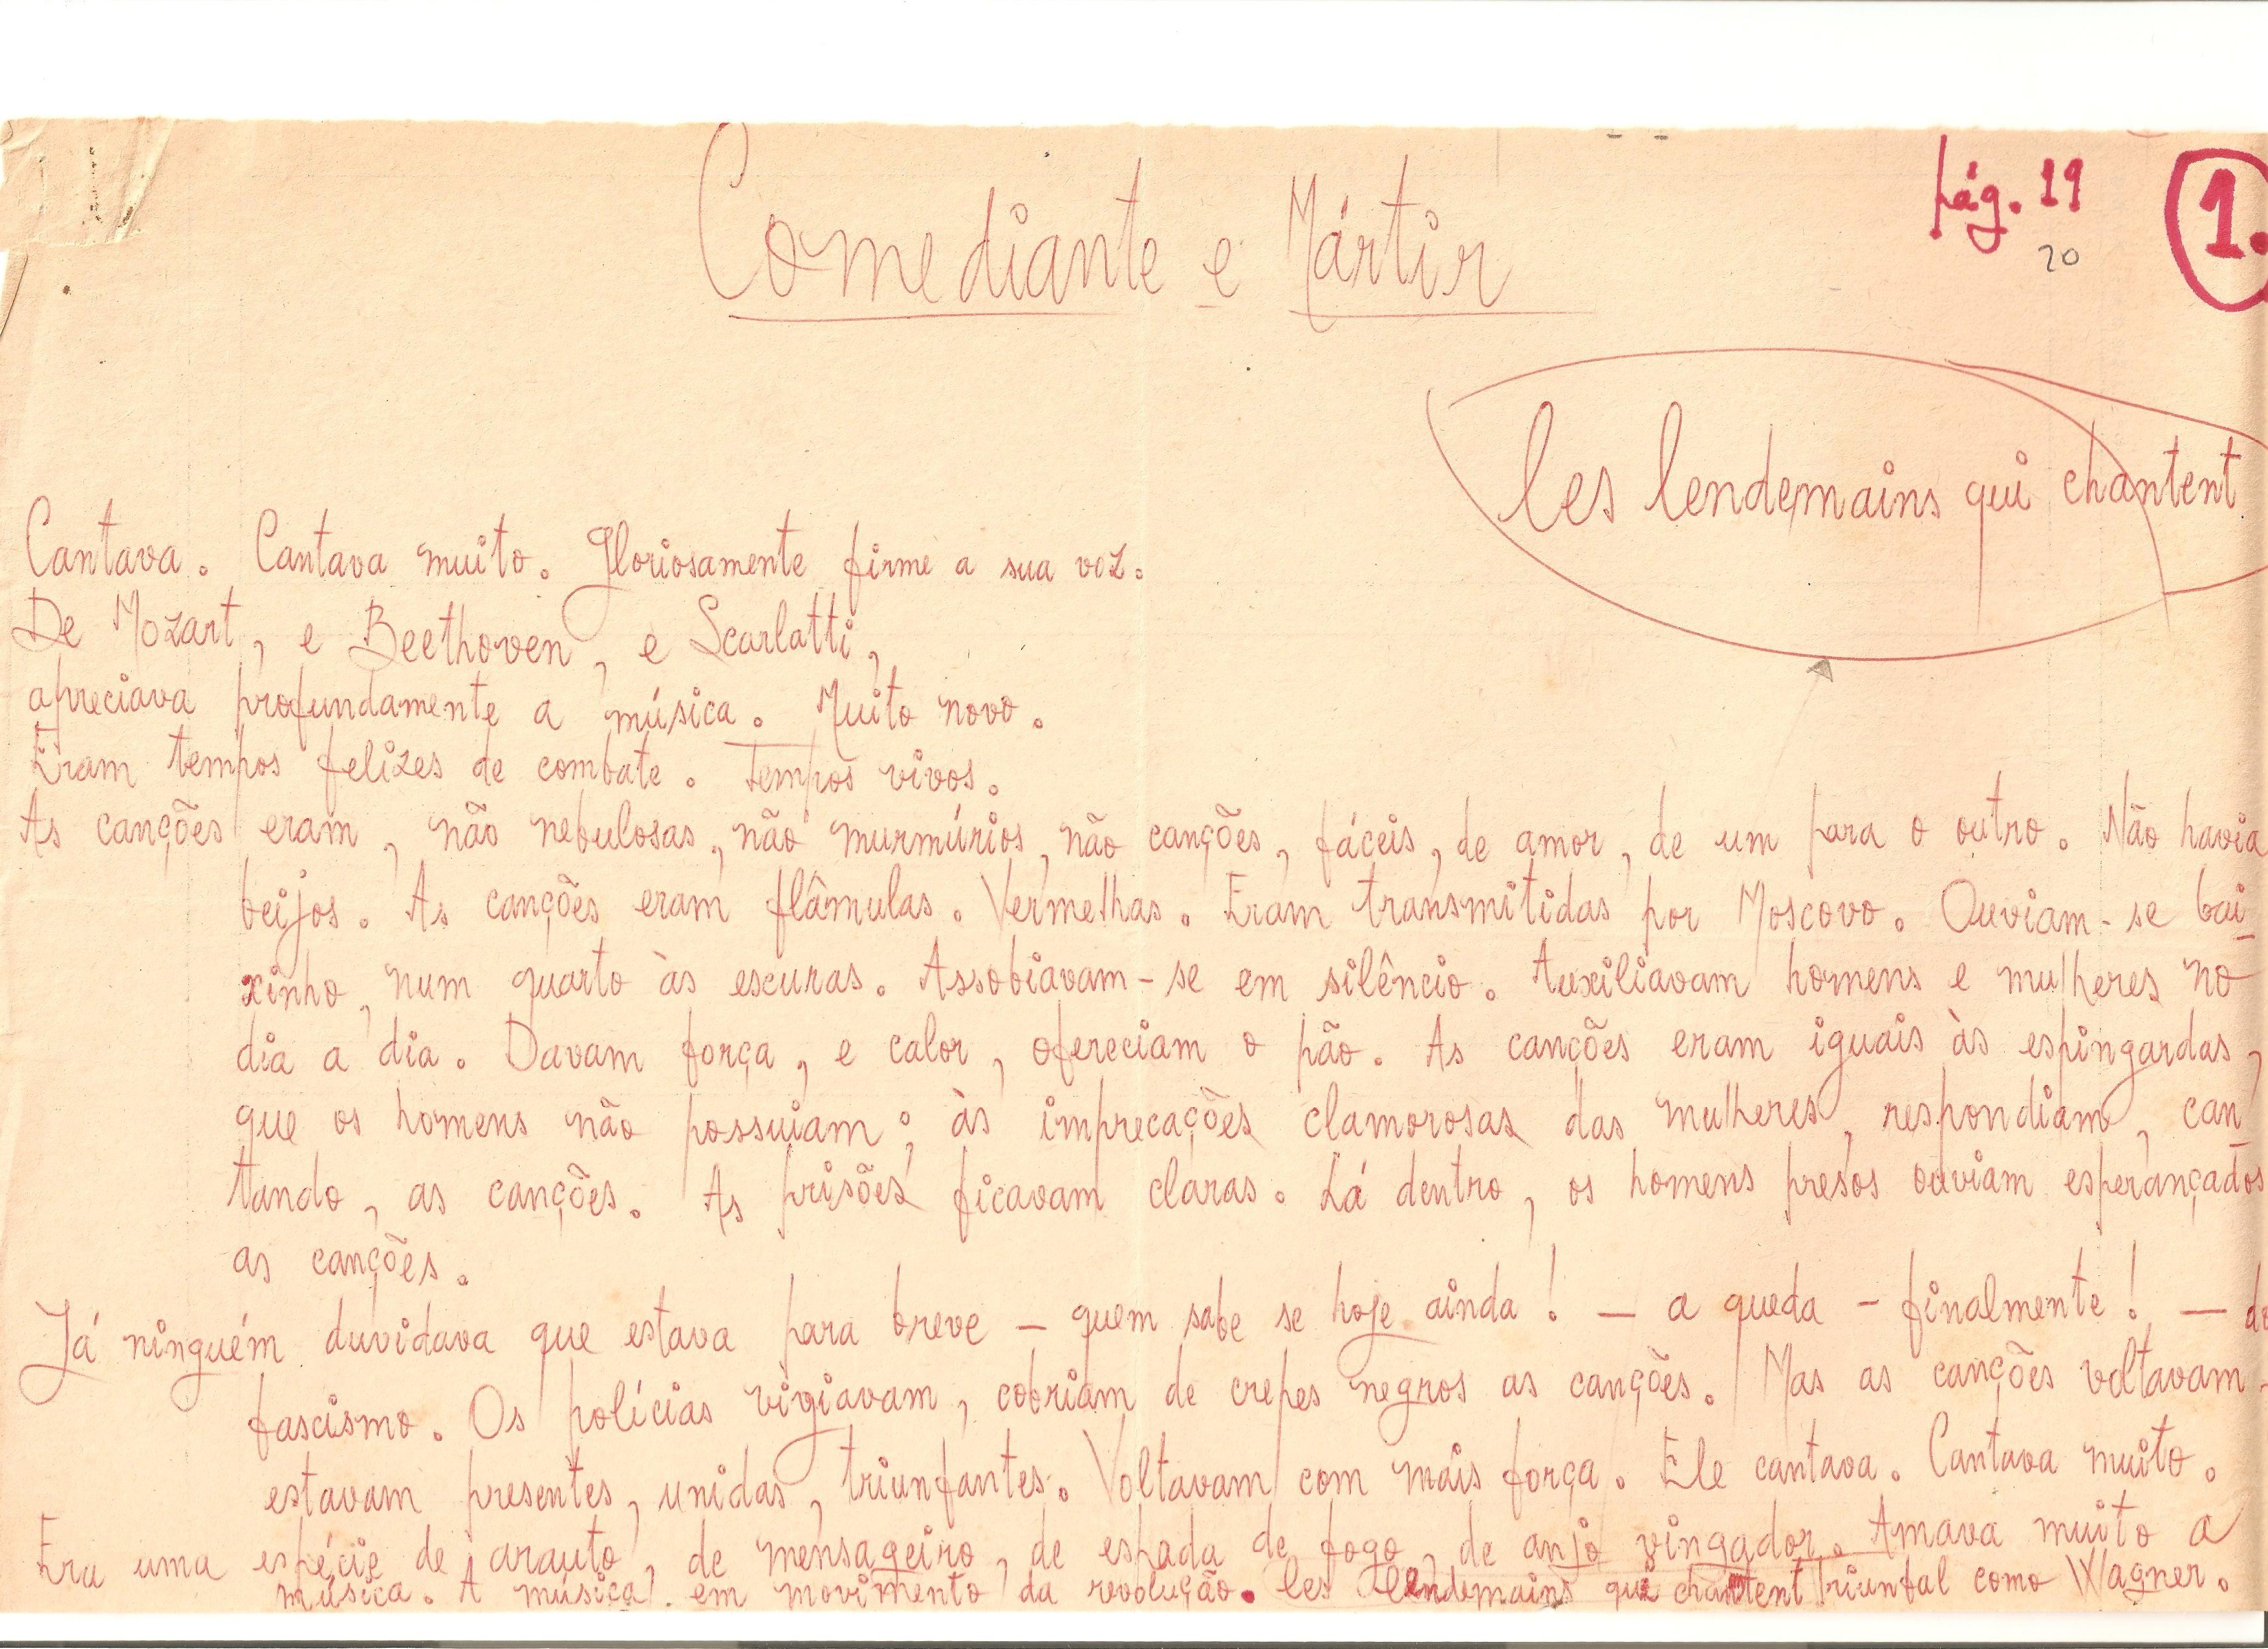 pág. 19
20
1.
Comediante e Mártir
les lendemains qui chantent
Cantava. Cantava muito. Gloriosamente firme a sua voz.
De Mozart, e Beethoven, e Scarlatti,
apreciava profundamente a música. Muito novo.
Eram tempos felizes de combate. Tempos vivos.
As canções eram, não nebulosas, não murmúrios, não canções, fáceis, de amor, de um para o outro. Não havia
beijos. As canções eram flâmulas. Vermelhas. Eram transmitidas por Moscovo. Ouviam-se bai-
xinho, num quarto às escuras. Assobiavam-se em silêncio. Auxiliavam homens e mulheres no
dia a dia. Davam força, e calor, ofereciam o pão. As canções eram iguais às espingardas,
que os homens não possuiam; às imprecações clamorosas das mulheres, respondiam, can-
tando, as canções. As prisões ficavam claras. Lá dentro, os homens presos ouviam esperançados
as canções.
Já ninguém duvidava que estava para breve - quem sabe se hoje ainda! - a queda - finalmente! - do
fascismo. Os polícias vigiavam, cobriam de crepes negros as canções. Mas as canções voltavam,
estavam presentes, unidas, triunfantes. Voltavam com mais força. Ele cantava. Cantava muito.
Era uma espécie de arauto, de mensageiro, de espada de fogo, de anjo vingador. Amava muito a
música. A música em movimento da revolução. les lendemains qui chantent triunfal como Wagner.